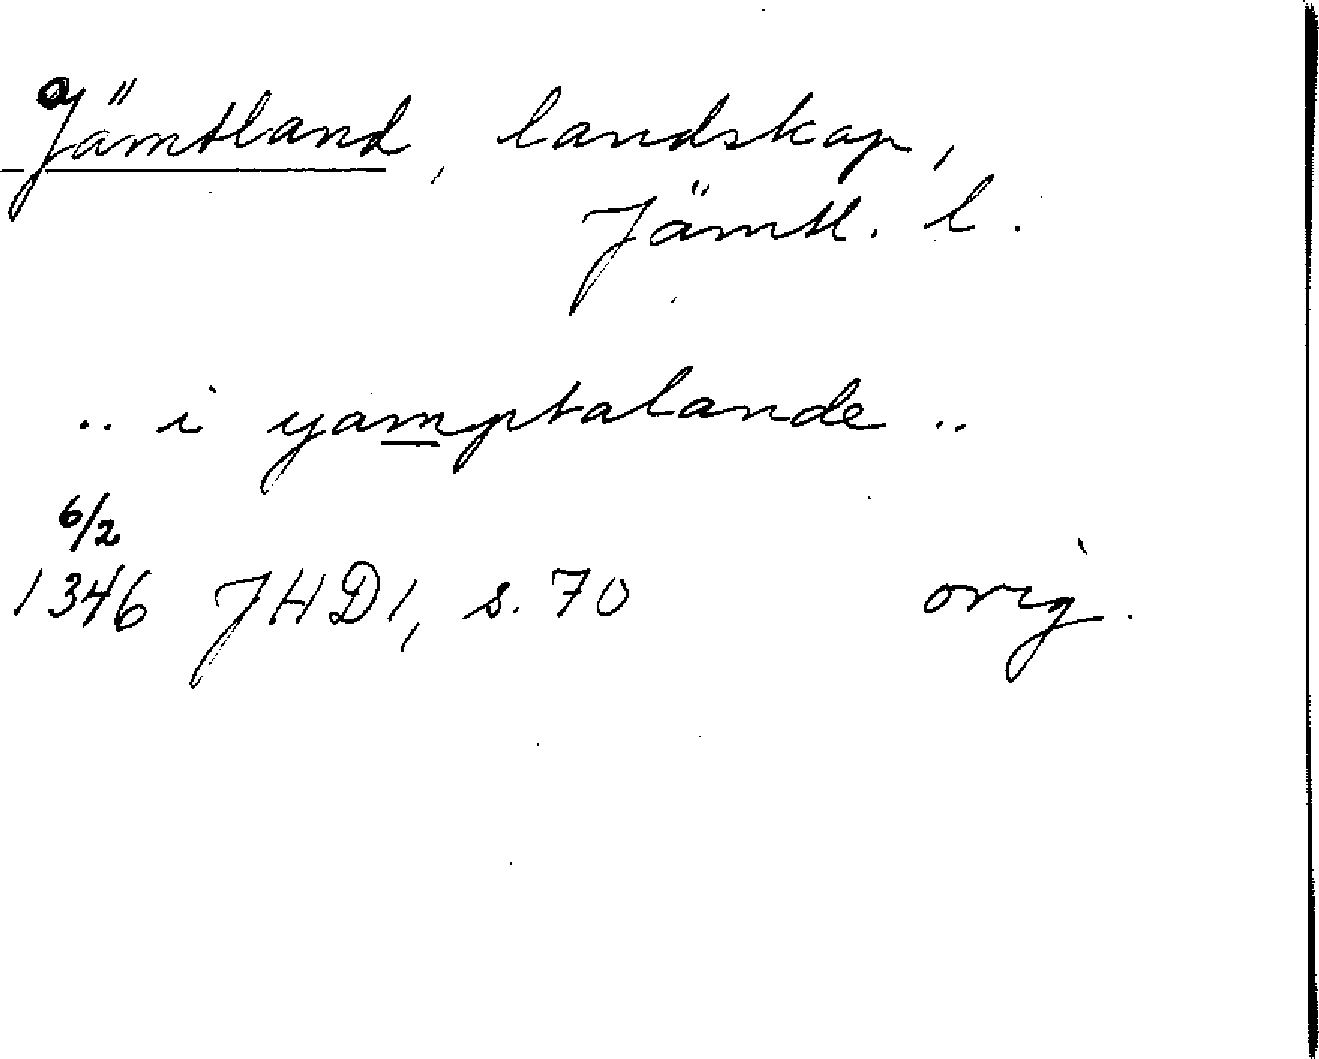 Jämtland, landskap,
Jämtl. l.
.. i yamptalande ..
6/2
1346 JHD1, s. 70 orig.